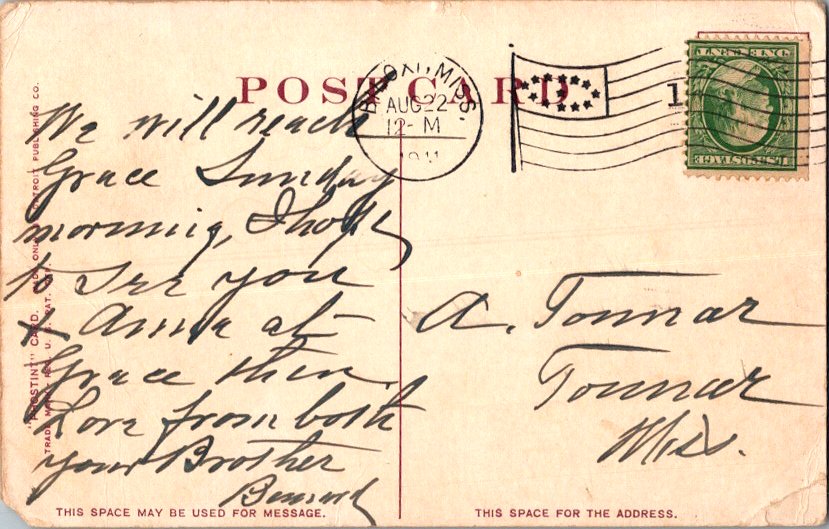 POST CARD
BILOXI, MISS.
AUG 22
12-M
1911
1
U.S. POSTAGE
ONE CENT
We will reach
Grace Sunday
morning, I hope
to see you
& Anna at
Grace then.
Love from both
your Brother
A. Tonnar
Tonnar
Miss.
"PHOSTINT" CARD.
TRADE MARK. REG. U. S. PAT. OFF.
MADE ONLY BY DETROIT PUBLISHING CO.
THIS SPACE MAY BE USED FOR MESSAGE.
THIS SPACE FOR THE ADDRESS.